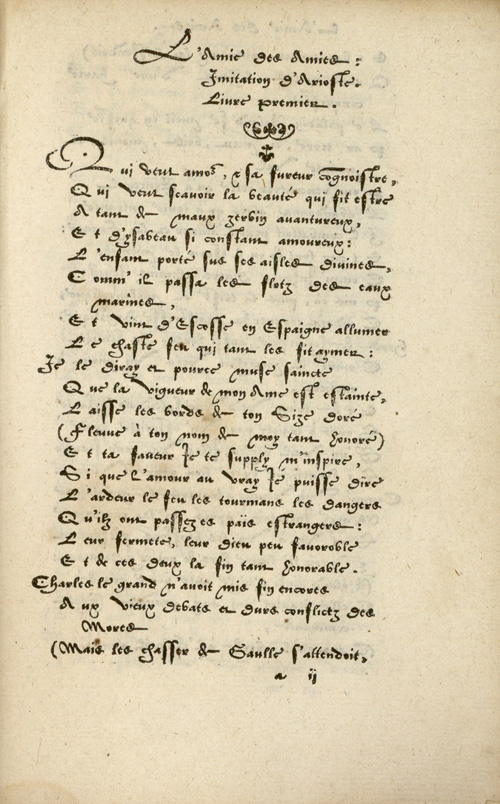 L'Amie des Amies:
Imitation d'Arioste.
Livre premier.
Qui veut amor, & sa fureur cognoistre,
Qui veut scavoir la beauté qui fit estre
A tant de maux zerbin avantureux,
Et d'ysabeau si constant amoureux:
L'enfant porté sus ses aisles divines,
Comm' il passa les flotz des eaux
marines,
Et vint d'Escosse en Espaigne allumer
Le chaste feu qui tant les fit aymer:
Je le diray et pource muse saincte
Que la vigueur de mon Ame est estainte,
Laisse les bords de ton Size doré
(Fleuve à ton nom de moy tant honoré)
Et ta faveur Je te supply m'inspire,
Si que L'amour au vray Je puisse dire
L'ardeur le feu les tourmans les dangers
Qu'ilz ont passez es païs estrangers:
Leur fermeté, leur dieu peu favorable
Et de ces deux la fin tant honorable.
Charles le grand n'avoit mis fin encores
Aux vieux debats et durs conflictz des
Mores
(Mais les chasser de Gaulle s'attendoit,
a ij